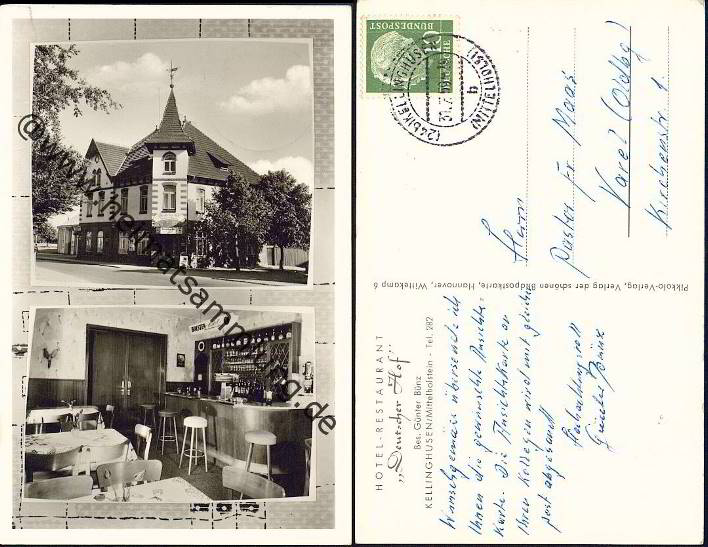 © www.heimatsammlung.de
BUNDESPOST
DEUTSCHE
10
(24b) KELLINGHUSEN
(MITTELHOLST)
b
Herrn
Pastor Fr. Maas
Varel (Oldbg)
Kirchenstr. 1
Pikkolo-Verlag, Verlag der schönen Bildpostkarte, Hannover, Wittekamp 6
HOTEL-RESTAURANT
„Deutscher Hof"
Bes. Günter Bünz
KELLINGHUSEN/Mittelholstein - Tel. 282
Wunschgemäss übersende ich
Ihnen die gewünschte Ansichts-
Karte. Die Ansichtskarte an
Ihren Kollegen wird mit gleicher
Post abgesandt
Hochachtungsvoll
Günter Bünz